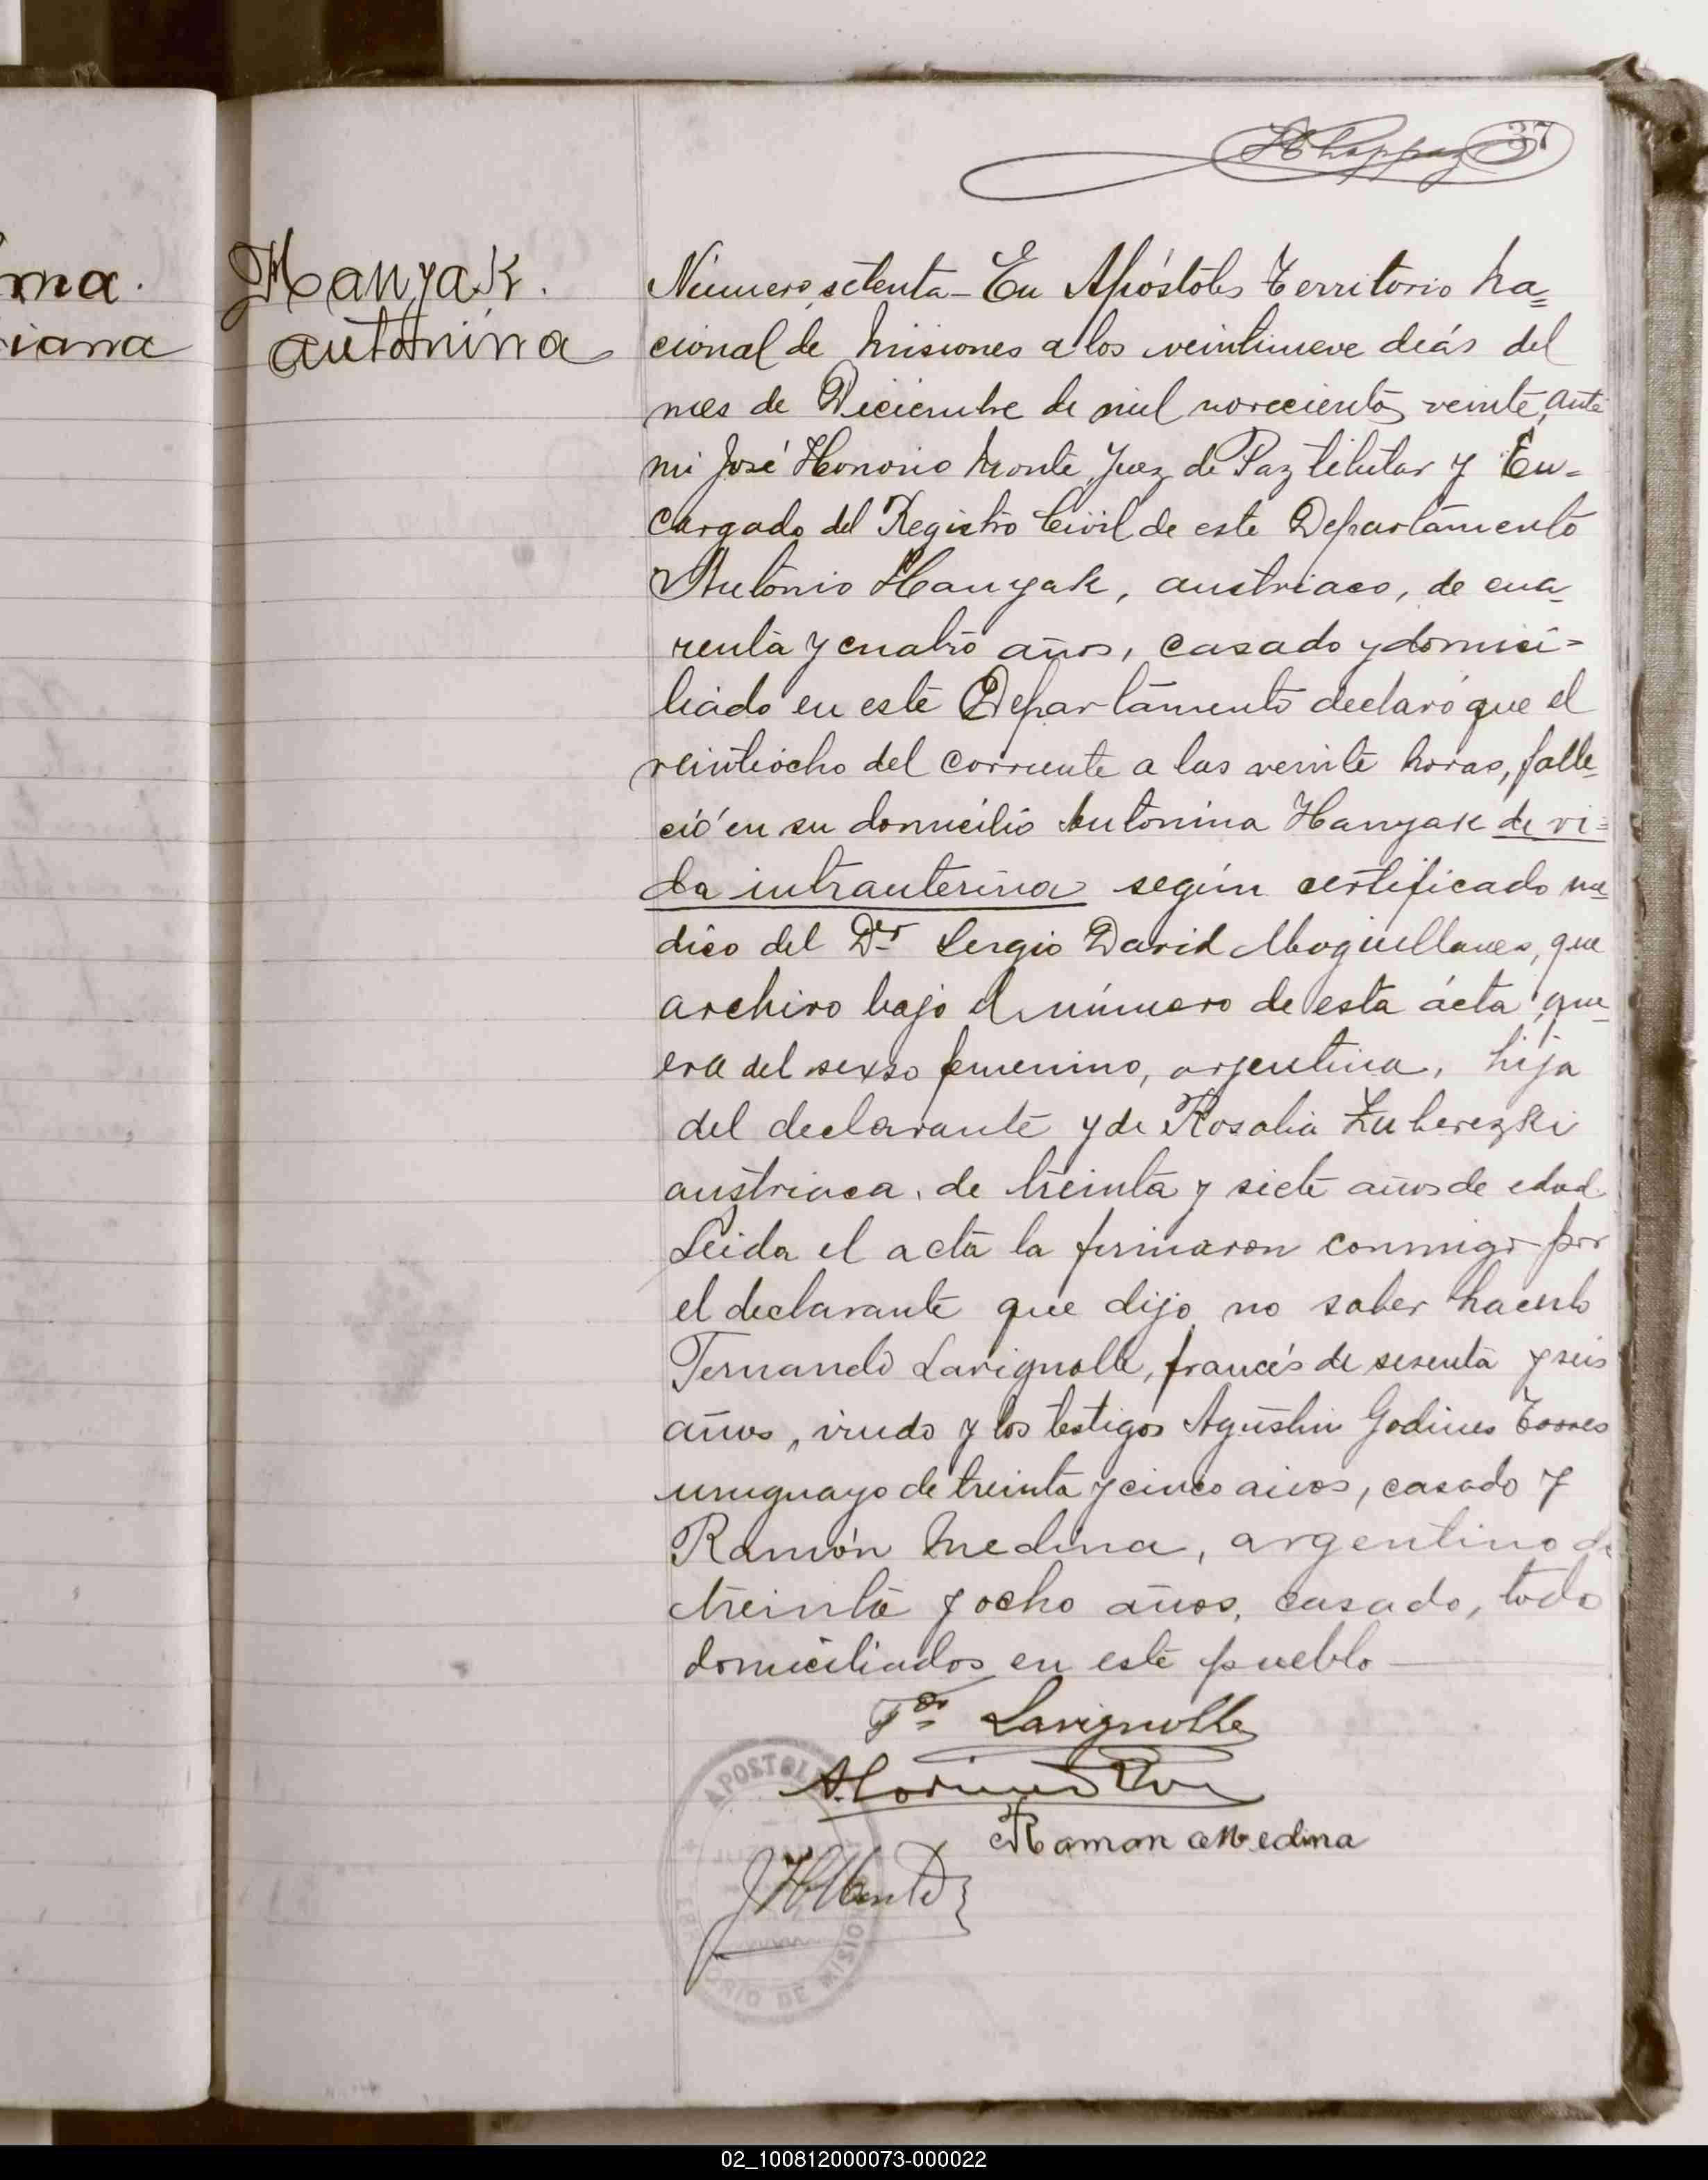 37
ma.
iana
Hanyak.
Antonina
Número setenta - En Apóstoles Territorio Na=
cional de Misiones a los veintinueve diás del
mes de Diciembre de mil novecientos veinte, ante
mi José Honorio Monte, Juez de Paz titular y En=
cargado del Registro Civil de este Departamento
Antonio Hanyak, austriaco, de cua=
renta y cuatro años, casado y domici=
liado en este Departamento declaró que el
veintiocho del corriente a las veinte horas, falle=
ció en su domicilio Antonina Hanyak de vi=
da intrauterina según certificado me=
dico del Dr Sergio David Moguillanes, que
archivo bajo el número de esta ácta, que=
era del sexso femenino, argentina, hija
del declarante y de Rosalia Zuberezki
austriaca, de treinta y siete años de edad.
Leida el acta la firmaron conmigo por
el declarante que dijo no saber hacerlo
Fernando Lavignolle, francés de sesenta y seis
años, viudo y los testigos Agustin Godines Torres
uruguayo de treinta y cinco años, casado y
Ramón Medina, argentino de
treinta y ocho años, casado, todo
domiciliados en este pueblo
Fdo Lavignolle
Ramon Medina
JHMonte
APOSTOL
ORIO DE MISION
02_100812000073-000022